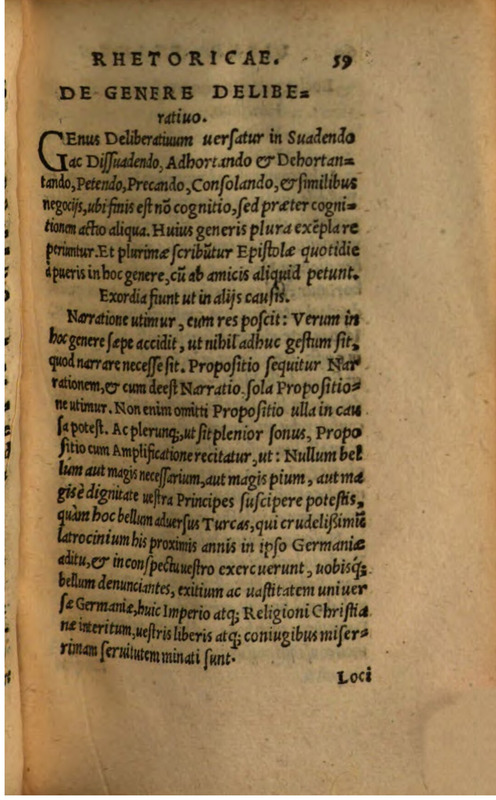 RHETORICAE. 59
DE GENERE DELIBE=
ratiuo.
GEnus Deliberatiuum uersatur in Suadendo
ac Dissuadendo, Adhortando & Dehortan=
tando, Petendo, Precando, Consolando, & similibus
negocijs, ubi finis est nõ cognitio, sed præter cogni=
tionem actio aliqua. Huius generis plura exẽpla re
periuntur. Et plurimæ scribũtur Epistolæ quotidie
à pueris in hoc genere, cũ ab amicis aliquid petunt.
Exordia fiunt ut in alijs causis.
Narratione utimur, cum res poscit: Verum in
hoc genere sæpe accidit, ut nihil adhuc gestum sit,
quod narrare necesse sit. Propositio sequitur Nar
rationem, & cum deest Narratio. sola Propositio=
ne utimur. Non enim omitti Propositio ulla in cau
sa potest. Ac plerunq;, ut sit plenior sonus, Propo
sitio cum Amplificatione recitatur, ut: Nullum bel
lum aut magis necessarium, aut magis pium, aut ma
gis è dignitate uestra Principes suscipere potestis,
quàm hoc bellum aduersus Turcas, qui crudelißimũ
latrocinium his proximis annis in ipso Germaniæ
aditu, & in conspectu uestro exercuerunt, uobisq́;
bellum denunciantes, exitium ac uastitatem uniuer
sæ Germaniæ, huic Imperio atq; Religioni Christia
næ interitum, uestris liberis atq; coniugibus miser=
rimam seruitutem minati sunt.
Loci